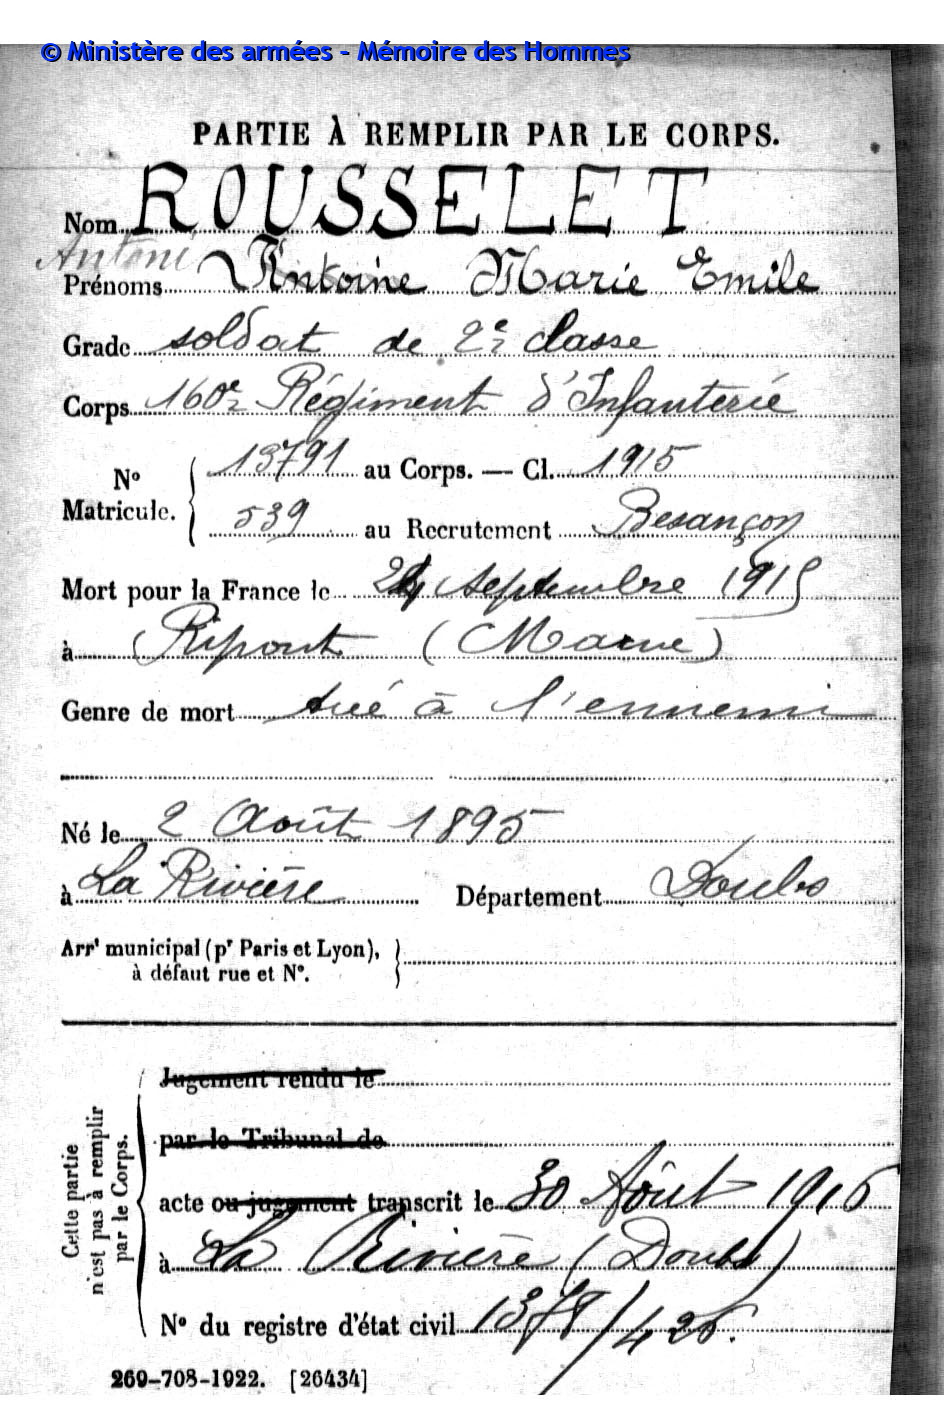 © Ministère des armées - Mémoire des Hommes
PARTIE À REMPLIR PAR LE CORPS.
Nom ROUSSELET
Antoni
Prénoms Antoine Marie Emile
Grade soldat de 2e classe
Corps 160e Régiment d'Infanterie
No Matricule. { 13791 au Corps. — Cl. 1915
539 au Recrutement Besançon
Mort pour la France le 24 septembre 1915
à Ripont (Marne)
Genre de mort tué à l'ennemi
Né le 2 Août 1895
à La Rivière Département Doubs
Arrt municipal (pr Paris et Lyon), }
à défaut rue et No.
Cette partie n'est pas à remplir par le Corps.
Jugement rendu le
par le Tribunal de
acte ou jugement transcrit le 30 Août 1916
à La Rivière (Doubs)
No du registre d'état civil 1378/426.
269-708-1922. [26434]